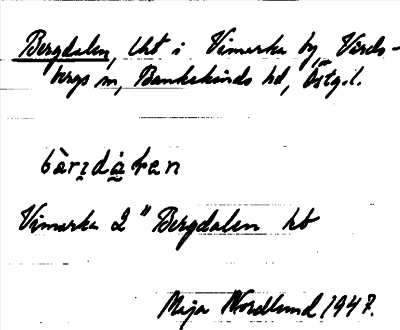 Bergdalen, lht i Vimarka by, Vårds-
bergs sn, Bankekinds hd, Östg.l.
Vimarka 2" Bergdalen ht
Maja Nordlund 1947.